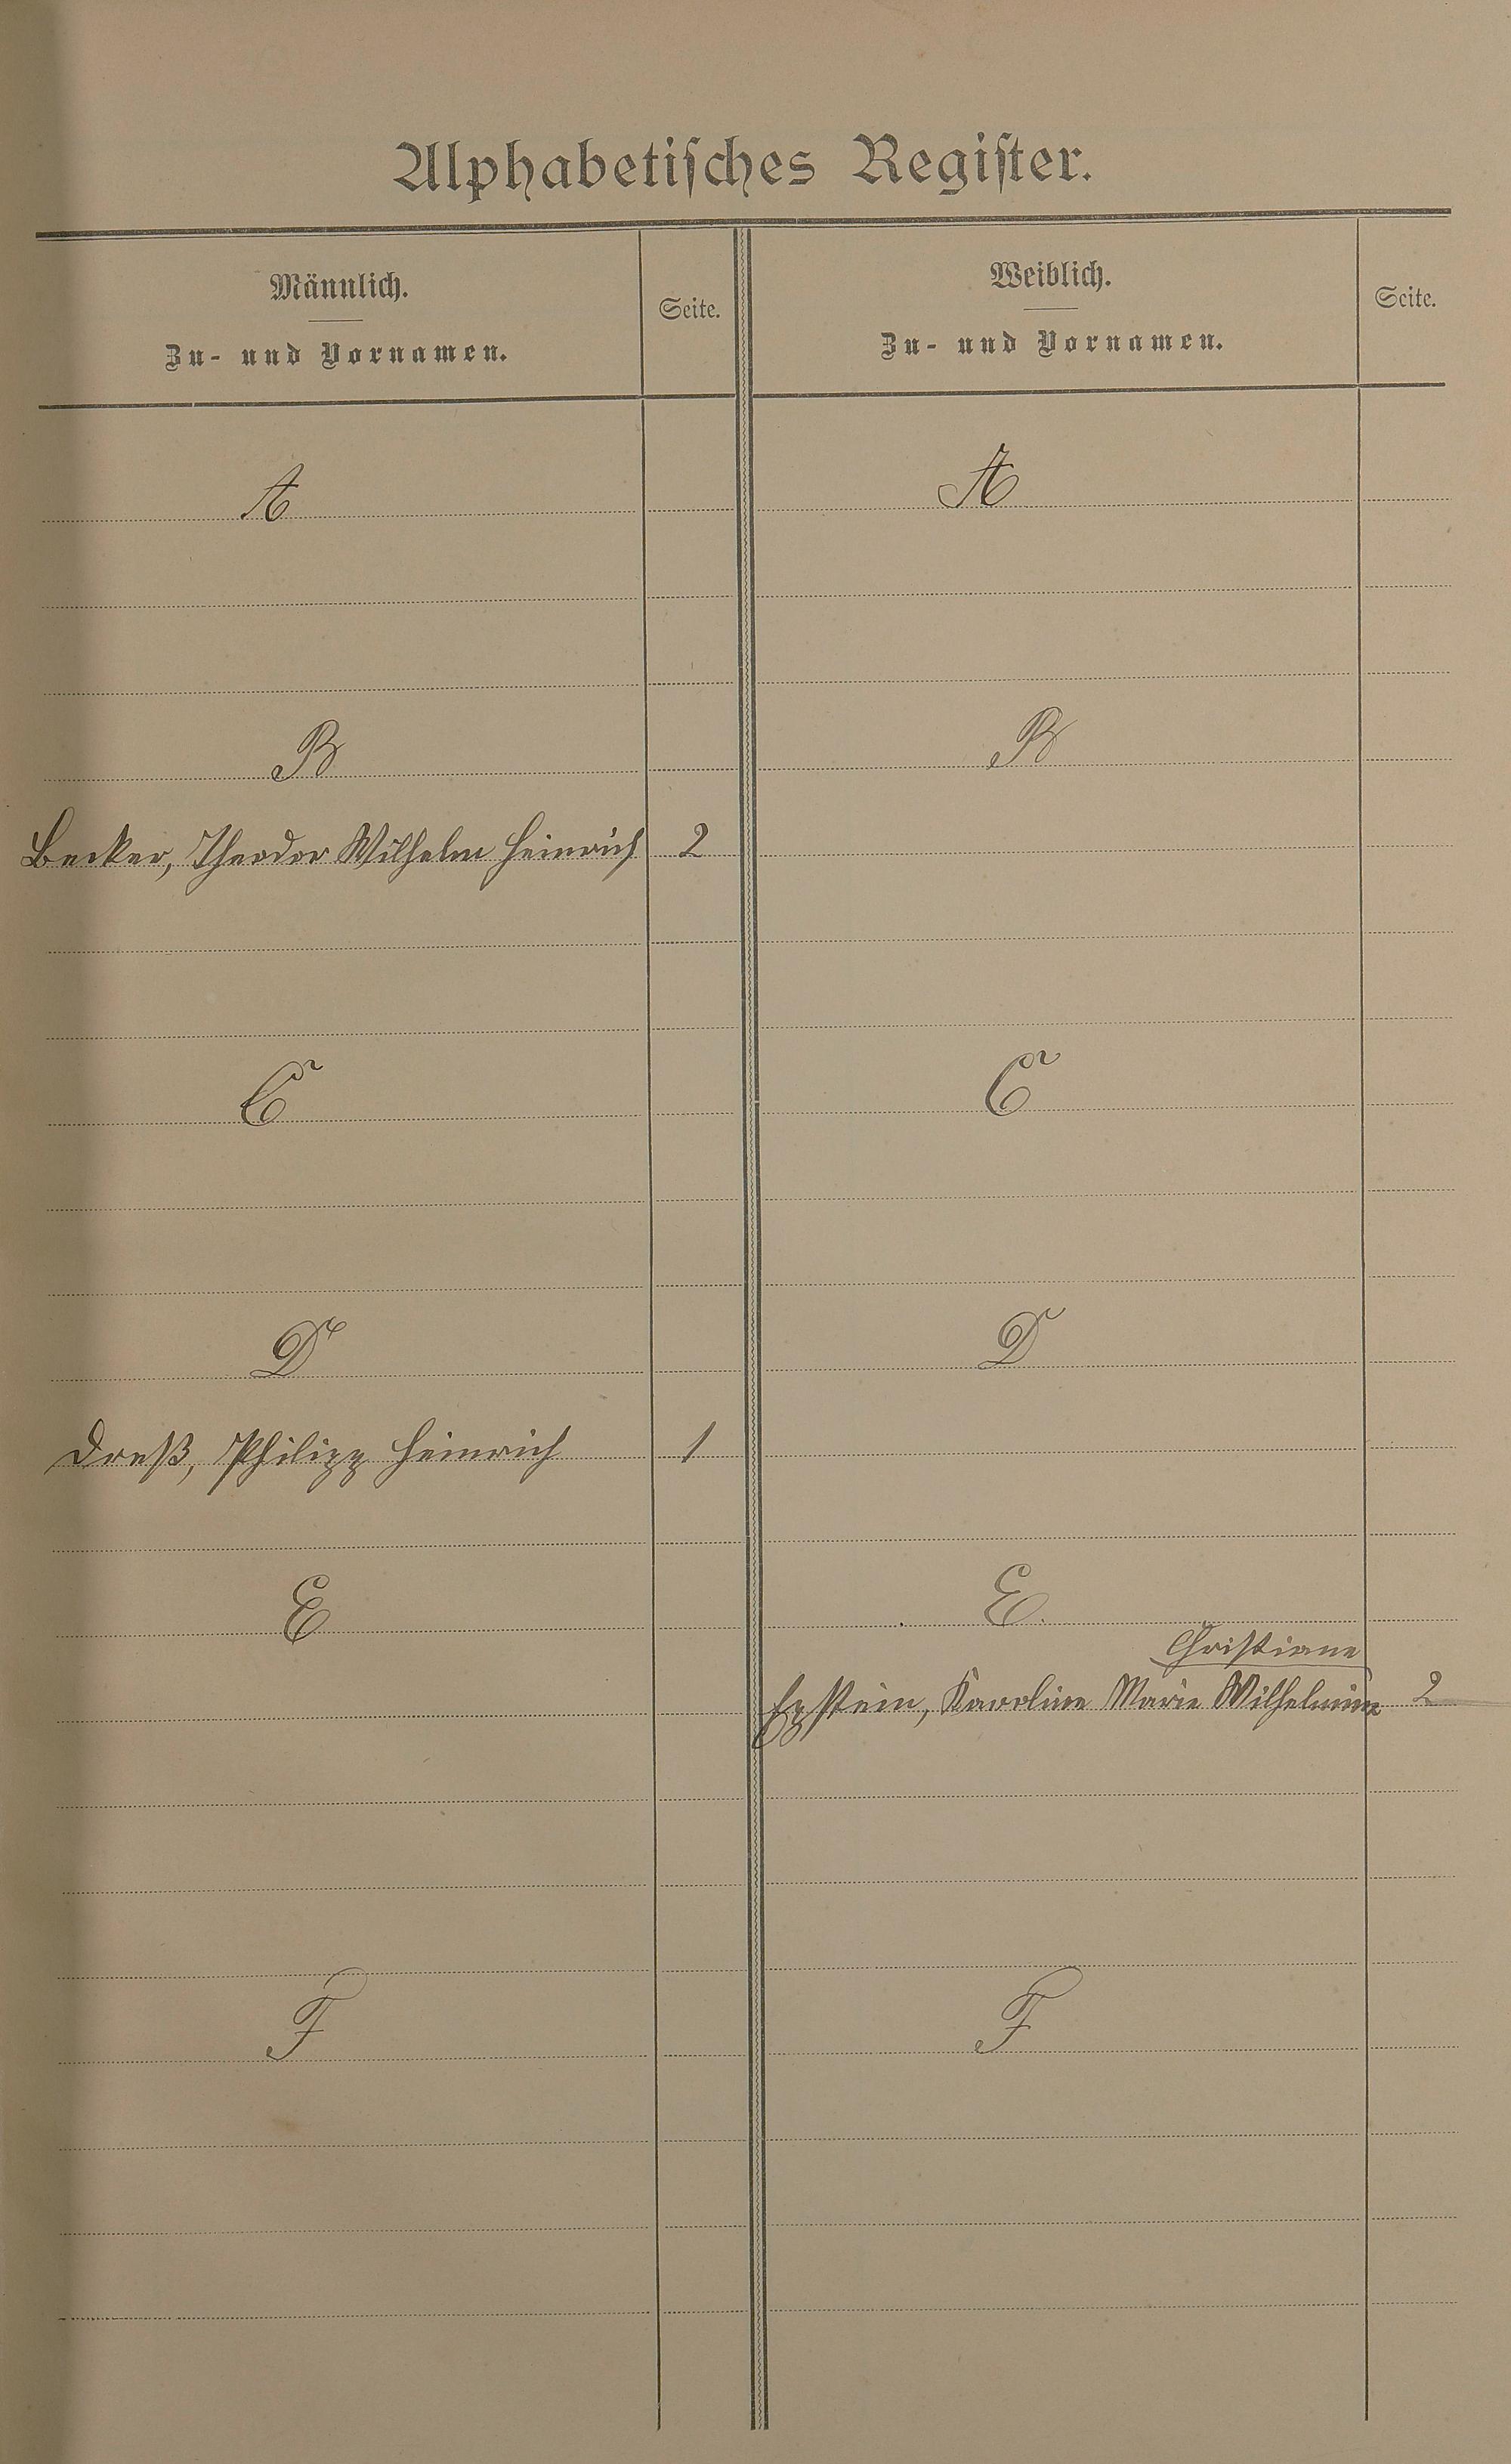 Alphabetisches Register.
Männlich.
Zu- und Vornamen.
Seite.
Weiblich.
Zu- und Vornamen.
Seite.
A
A
B
B
Becker, Theodor Wilhelm Heinrich 2
C
C
D
D
Dreß, Philipp Heinrich 1
E
E.
Christiane
Epstein, Karoline Marie Wilhelmine 2
F
F